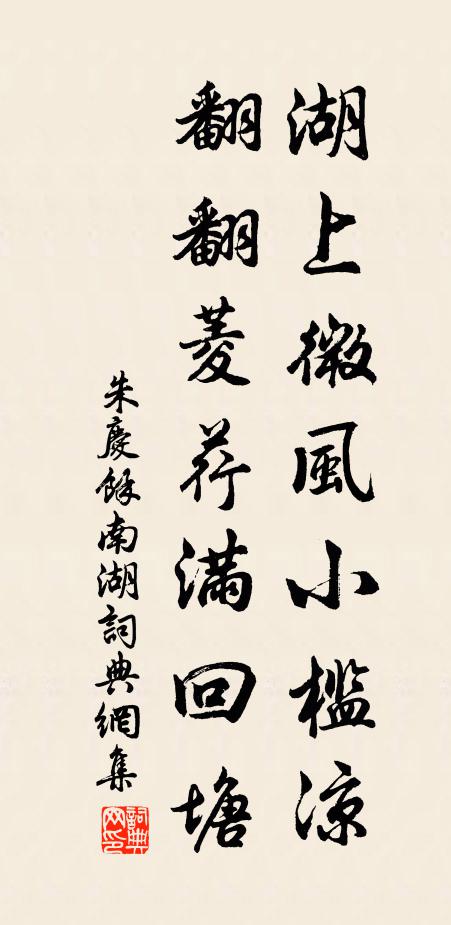 湖上微風小檻涼
翻翻菱荇滿回塘
朱慶餘南湖詞典網集
詞典網印